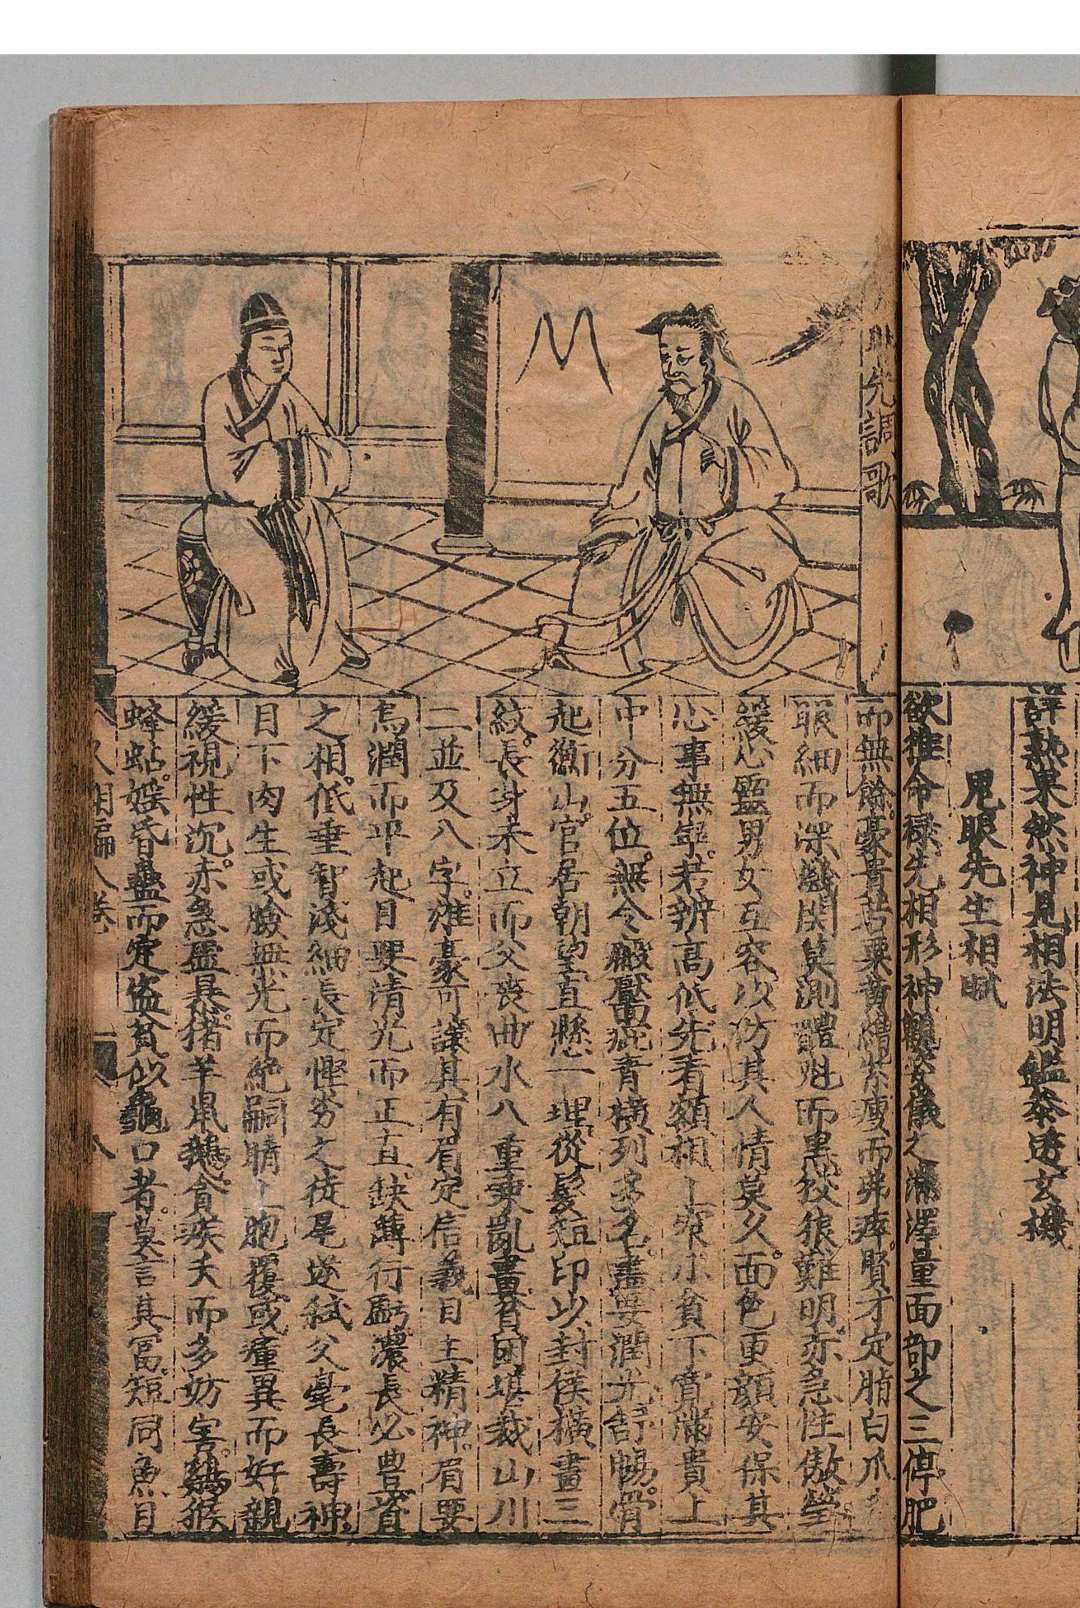 詳熟果然神見相法明鑑參透玄機
鬼眼先生相賦
欲推命祿先相形神聽姿儀之濡澤量面部之三停肥
先調歌
而無餘豪貴若粟黃繒紫瘦而弗瘁賢才定腈白爪
眼細而深機関莫測體魁而黑狡狼難明亦急性傲瑩
緩心靈男女互容以仿其人情莫久面色更顔安保其
心事無寧若辨高低先看額相上窄小貧下賓滿貴上
中分五位無令瘢黶疵青橫列多名盡要潤光舒暢骨
起衡山官居朝望直懸一理從髮短印以封侯橫畫三
紋長身未立而父喪曲水八重乘亂畫貧困填裁山川
二並及八字雅豪可讓其有眉定信義目主精神眉要
鳥潤而平起目要清光而正直缺薄行虧濃長必豊資
之相低垂智淺細長定慳劣之徒尾逐弒父毫長壽神
目下肉生或臉無光而絶嗣睛上胞覆或瘇異而奸親
緩視性沉赤急盈暴猪羊鼠鵝貪疾夭而多妨害鷄猴
蜂蛄婬昏蠱而定盗貧似龜口者莫言其富短同魚目
人相編八卷
八